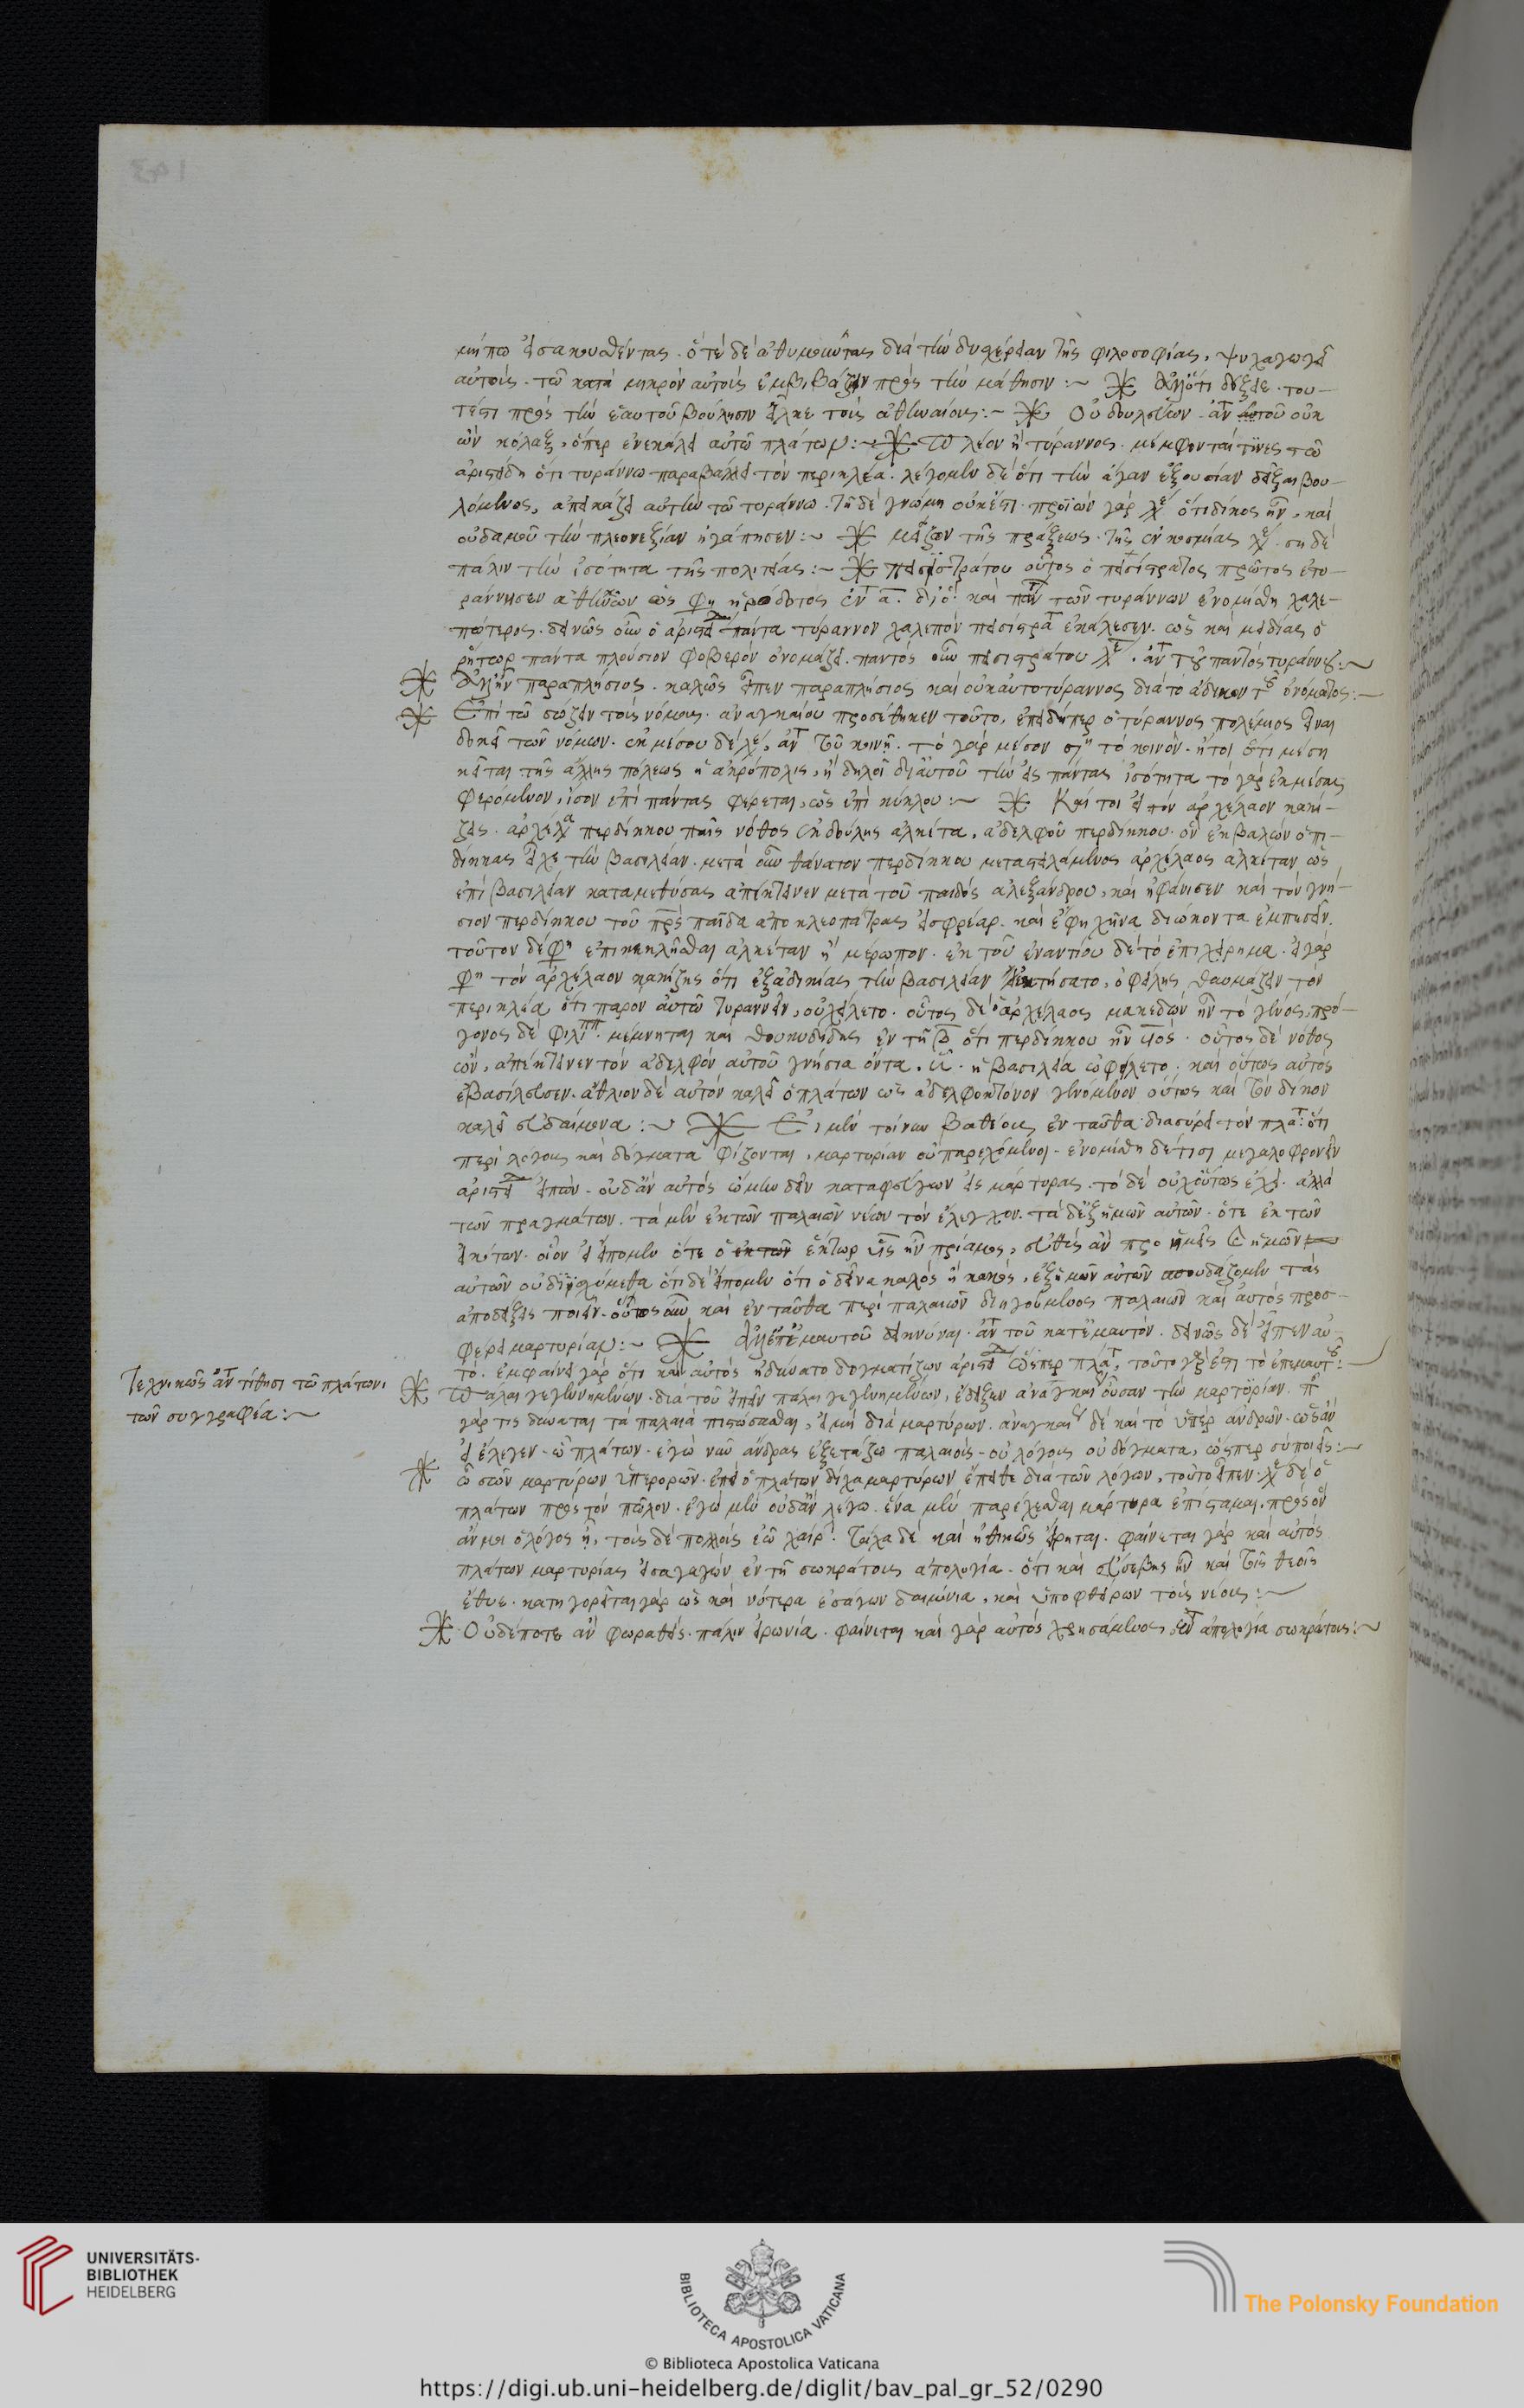 μήπω εἰσακουσθέντας. ὁτὲ δὲ ἀθυμοῦντας διὰ τὴν δυσχέρειαν τῆς φιλοσοφίας, ψυχαγωγεῖ
αὐτοὺς. τῶ κατὰ μικρὸν αὐτοὺς ἐμβιβάζειν πρὸς τὴν μάθησιν :~ ὅτι δόξειε. του-
τέστι πρὸς τὴν ἑαυτοῦ βούλησιν εἷλκε τοὺς ἀθηναίους :~ Οὐ δουλεύων. αὐτοῦ οὐκ
ὢν κόλαξ, ὅπερ ἐνεκάλει αὐτῶ πλάτων :~ Πλέον ἢ τύραννος. μέμφονταί τινες τῶ
ἀριστείδη ὅτι τυράννω παραβάλλει τὸν περικλέα. λέγομεν δὲ ὅτι τὴν ἄγαν ἐξουσίαν δεῖξαι βου-
λόμενος, ἀπεικάζει αὐτὴν τῶ τυράννω. τῆ δὲ γνώμη οὐκέτι. προϊὼν γάρ ὅτι δίκαιος ἦν, καὶ
οὐδαμοῦ τὴν πλεονεξίαν ἠγάπησεν :~ μεῖζον τῆς πράξεως. τῆς
πάλιν τὴν ἰσότητα τῆς πολιτείας :~ πεισιστράτου οὗτος ὁ πεισίστρατος πρῶτος ἐτυ-
ράννησεν ἀθηναίων ὥς φη ἡρόδοτος ἐν α. διὸ καὶ τῶν τυράννων ἐνομίσθη χαλε-
πώτερος. δεινῶς οὖν ὁ ἀριστεί πάντα τύραννον χαλεπὸν πεισίστρα ἐκάλεσεν. ὡς καὶ μειδίας ὁ
ῥήτωρ πάντα πλούσιον φοβερὸν ὀνομάζει. παντὸς οὖν πεισιστράτου παντὸς τυράννου :~
ἦν παραπλήσιος. καλῶς εἶπεν παραπλήσιος καὶ οὐκ αὐτοτύραννος διὰ τὸ ἄδικον τοῦ ὀνόματος :~
Ἐπὶ τῶ σώζειν τοὺς νόμους. ἀναγκαίου προσέθηκεν τοῦτο, ἐπειδήπερ ὁ τύραννος πολέμιος εἶναι
δοκεῖ τῶν νόμων. ἐκ μέσου δὲ τὸ γὰρ μέσον τὸ κοινόν. ἤτοι ὅτι μέση
κεῖται τῆς ἄλλης πόλεως ἡ ἀκρόπολις, ἢ δηλοῖ δι' αὐτοῦ τὴν εἰς πάντας ἰσότητα τὸ γὰρ ἐκ μέσης
φερόμενον, ἴσον ἐπὶ πάντας φέρεται, ὡς ἐπὶ κύκλου :~ Καί τοι εἰ τὸν ἀρχέλαον κακί-
ζεις. ἀρχέλα περδίκκου παῖς νόθος ἐκ δούλης ἀλκέτα, ἀδελφοῦ περδίκκου. ὃν ἐκβαλὼν ὁ περ-
δίκκας εἶχε τὴν βασιλείαν. μετὰ οὖν θάνατον περδίκκου μεταστειλάμενος ἀρχέλαος ἀλκέταν ὡς
ἐπὶ βασιλείαν καταμεθύσας ἀπέκτεινεν μετὰ τοῦ παιδὸς ἀλεξάνδρου, καὶ ἠφάνισεν καὶ τὸν γνή-
σιον περδίκκου τοῦ πρς παῖδα ἀπὸ κλεοπάτρας εἰς φρέαρ. καὶ ἔφη χῆνα διώκοντα ἐμπεσεῖν.
τοῦτον δέ φη ἐπικεκλῆσθαι ἀλκέταν ἢ μέρωπον. ἐκ τοῦ ἐναντίου δὲ τὸ ἐπιχείρημα. εἰ γάρ
φη τὸν ἀρχέλαον κακίζης ὅτι ἐξ ἀδικίας τὴν βασιλείαν ἐκτήσατο, ὀφείλεις θαυμάζειν τὸν
περικλέα ὅτι παρὸν αὐτῶ τυραννεῖν, οὐχ εἵλετο. οὗτος δὲ ὁ ἀρχέλαος μακεδὼν ἦν τὸ γένος, πρό-
γονος δὲ φιλίππ. μέμνηται καὶ θουκυδίδης ἐν τῆ β ὅτι περδίκκου ἦν υἱός. οὗτος δὲ νόθος
ὤν, ἀπέκτεινεν τὸν ἀδελφὸν αὐτοῦ γνήσια ὄντα. ἡ βασιλεία ὠφείλετο. καὶ οὕτως αὐτὸς
ἐβασίλευσεν. ἄθλιον δὲ αὐτὸν καλεῖ ὁ πλάτων ὡς ἀδελφοκτόνον γενόμενον οὗτος καὶ τὸν δίκαιον
καλεῖ εὐδαίμονα :~ Εἰ μὲν τοίνυν βαθέως ἐνταῦθα διασύρει τὸν πλά ὅτι
περὶ λόγους καὶ δόγματα φίζονται, μαρτυρίαν οὐ παρεχόμενοι. ἐνομίσθη δέ τισι μεγαλοφρονεῖν
ἀριστεί εἰπών. οὐδ' ἂν αὐτὸς ὤμην δεῖν καταφεύγειν εἰς μάρτυρας. τὸ δὲ οὐχ οὕτως ἔχει. ἀλλὰ
τῶν πραγμάτων. τὰ μὲν ἐκ τῶν παλαιῶν νέμει τὸν ἔλεγχον. τὰ δὲ ἐξ ἡμῶν αὐτῶν. ὅτε ἐκ τῶν
εἰκότων. οἷον εἰ εἴπομεν ὅτε ὁ ἕκτωρ υἱὸς ἦν πριάμου, εὐθὺς ἂν προ ἡμᾶς ἡμῶν
αὐτῶν οὐ διϊσχύμεθα ὅτι δὲ εἴπομεν ὅτι ὁ δεῖνα καλὸς ἢ κακός, ἐξ ἡμῶν αὐτῶν σπουδάζομεν τὰς
ἀποδείξεις ποιεῖν. οὕτως οὖν καὶ ἐνταῦθα περὶ παλαιῶν διηγούμενος παλαιῶν καὶ αὐτὸς προσ-
φέρει μαρτυρίαν :~ ἐπ' ἐμαυτοῦ δεικνύναι. τοῦ κατ' ἐμαυτόν. δεινῶς δὲ εἶπεν αὐ-
τό. ἐμφαίνει γὰρ ὅτι καὶ αὐτὸς ἠδύνατο δογματίζων ἀριστεί ὥσπερ πλά, τοῦτο γάρ ἐστι τὸ ἐπ' ἐμαυτοῦ :~
Τεχνικῶς ἀντιτίθησι τῶ πλάτωνι
τῶν συγγραφέα :~
Πάλαι γεγενημένων. διὰ τοῦ εἰπεῖν πάλαι γεγενημένων, ἔδειξεν ἀναγκαίαν οὖσαν τὴν μαρτυρίαν.
γάρ τις δύναται τὰ παλαιὰ πιστώσασθαι, εἰ μὴ διὰ μαρτύρων. ἀναγκαῖον δὲ καὶ τὸ ὑπὲρ ἀνδρῶν. ὡς ἂν
εἰ ἔλεγεν. ὦ πλάτων. ἐγὼ νῦν ἄνδρας ἐξετάζω παλαιοὺς. οὐ λόγους οὐ δόγματα, ὥσπερ σὺ ποιεῖς :~
ὦ σῶν μαρτύρων ὑπερορῶν. ἐπεὶ ὁ πλάτων δίχα μαρτύρων ἔπειθε διὰ τῶν λόγων, τοῦτο εἶπεν. δὲ ὁ
πλάτων πρὸς τὸν πῶλον. ἐγὼ μὲν οὐδὲν λέγω. ἕνα μὲν παρέχεσθαι μάρτυρα ἐπίσταμαι, πρὸς ὃν
ἄν μοι ὁ λόγος ἦ, τοὺς δὲ πολλοὺς ἐῶ χαίρ. τάχα δὲ καὶ ἠθικῶς εἴρηται. φαίνεται γὰρ καὶ αὐτὸς
πλάτων μαρτυρίας εἰσαγαγὼν ἐν τῆ σωκράτους ἀπολογία. ὅτι καὶ εὐσεβὴς ἦν καὶ τοῖς θεοῖς
ἔθυε. κατηγορεῖται γὰρ ὡς καὶ νότερα εἰσάγων δαιμόνια, καὶ ὑποφθείρων τοὺς νέους :~
Οὐδέποτε ἂν φωραθείς. πάλιν εἰρωνία. φαίνεται καὶ γὰρ αὐτὸς χρησάμενος ἀπολογία σωκράτους :~
UNIVERSITÄTS-
BIBLIOTHEK
HEIDELBERG
BIBLIOTECA APOSTOLICA VATICANA
The Polonsky Foundation
© Biblioteca Apostolica Vaticana
https://digi.ub.uni-heidelberg.de/diglit/bav_pal_gr_52/0290